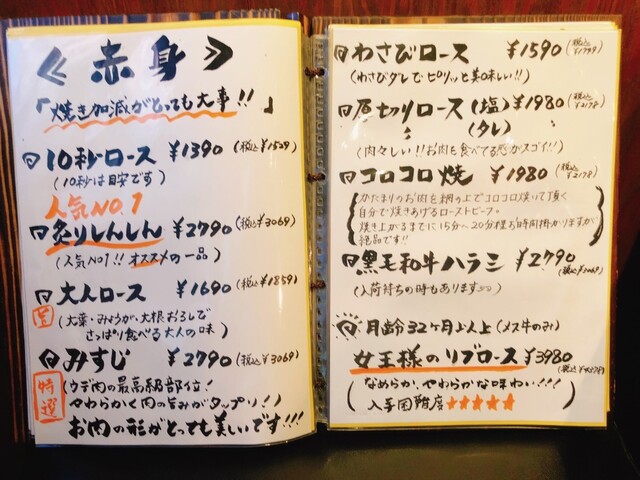 ≪赤身≫
「焼き加減がとっても大事!!」
10秒ロース ¥1390(税込¥1529)
(10秒は目安です)
人気NO.1
炙りしんしん ¥2790(税込¥3069)
(人気No1!! オススメの一品)
大人ロース ¥1690(税込¥1859)
(大葉・みょうが、大根おろしで
さっぱり食べる大人の味)
みすじ ¥2790(税込¥3069)
特選
(ウデ肉の最高級部位!
やわらかく肉の旨みがタップリ!)
お肉の形がとっても美しいです!!!
わさびロース ¥1590(税込¥1749)
(わさびダレでピリッと美味しい!!)
厚切りロース(塩) ¥1980(税込¥2178)
(タレ)
(肉々しい!!お肉を食べてる感がスゴイ!!)
コロコロ焼 ¥1980(税込¥2178)
かたまりのお肉を網の上でコロコロ焼いて頂く
自分で焼きあげるローストビーフ。
焼き上がるまでに15分〜20分程お時間掛かりますが
絶品です!!
黒毛和牛ハラミ ¥2790(税込¥3069)
(入荷待ちの時もあります)
月齢32ヶ月以上(メス牛のみ)
女王様のリブロース ¥3980(税込¥4378)
(なめらか、やわらかな味わい!!!
入手困難度★★★★★)